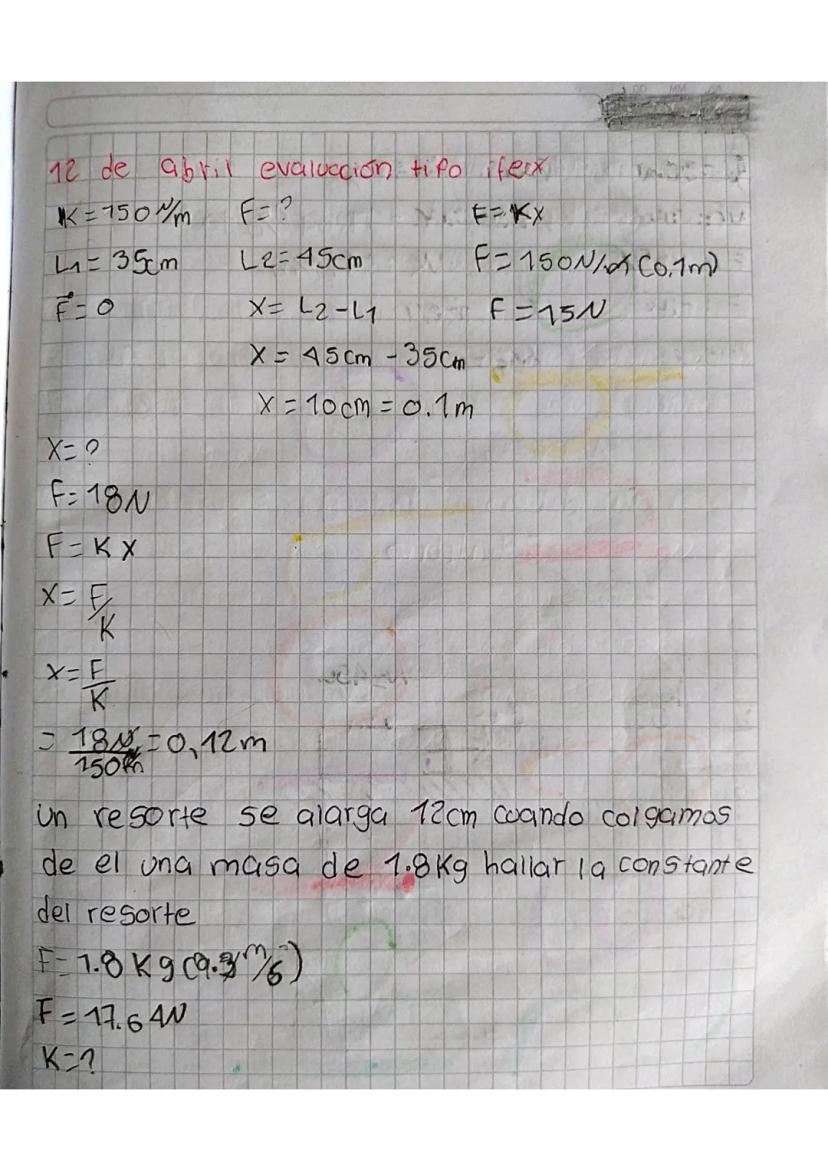 12 de abril evaluacción tipo ifex
K=150 N/m F=? F=Kx
L1= 35cm L2=45cm F=150N/m (0.1m)
F=0 X= L2-L1 F=15N
X= 45cm -35cm
X=10cm=0.1m
X=?
F=18N
F=KX
X=F/K
X=F/K
= 18N/150 =0,12m
un resorte se alarga 12cm cuando colgamos
de el una masa de 1.8Kg hallar la constante
del resorte
F=1.8 Kg( m/s)
F=17.64N
K=?